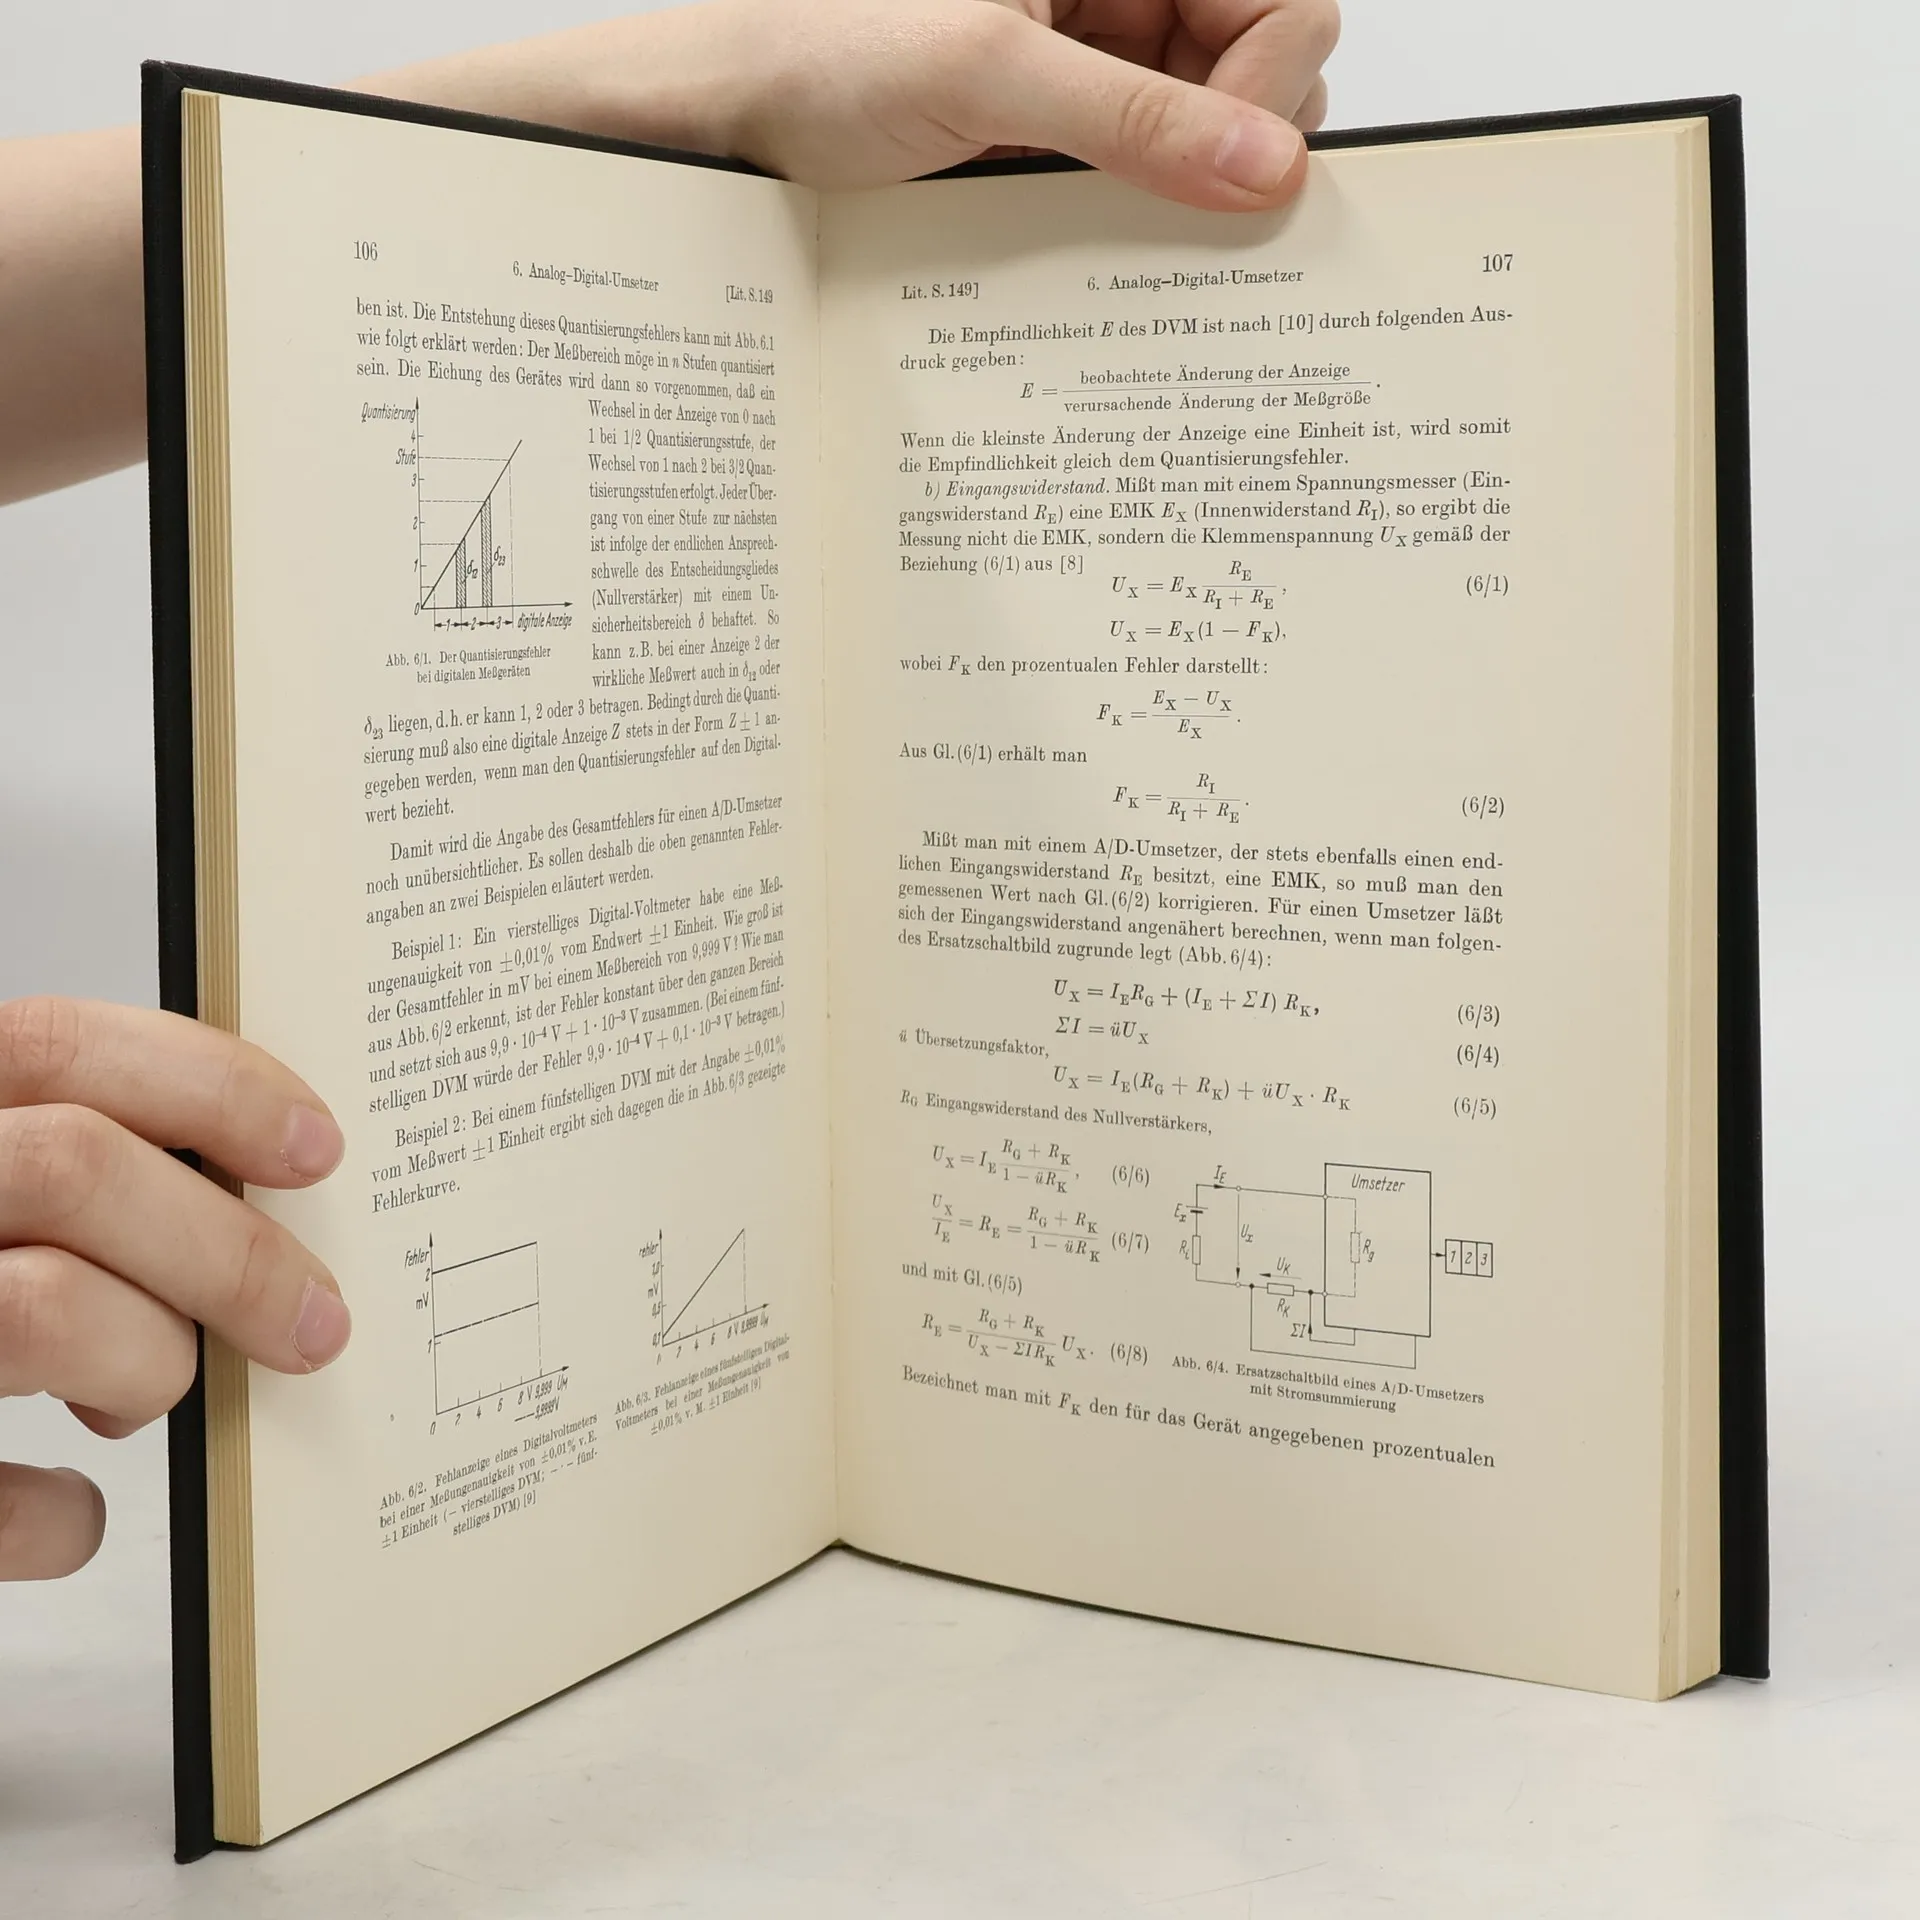 106
6. Analog–Digital-Umsetzer
[Lit. S. 149
ben ist. Die Entstehung dieses Quantisierungsfehlers kann mit Abb. 6.1
wie folgt erklärt werden: Der Meßbereich möge in n Stufen quantisiert
sein. Die Eichung des Gerätes wird dann so vorgenommen, daß ein
Wechsel in der Anzeige von 0 nach
1 bei 1/2 Quantisierungsstufe, der
Wechsel von 1 nach 2 bei 3/2 Quan-
tisierungsstufen erfolgt. Jeder Über-
gang von einer Stufe zur nächsten
ist infolge der endlichen Ansprech-
schwelle des Entscheidungsgliedes
(Nullverstärker) mit einem Un-
sicherheitsbereich δ behaftet. So
kann z.B. bei einer Anzeige 2 der
wirkliche Meßwert auch in δ₁₂ oder
Quantisierung
4
Stufe
3
2
1
0
δ₁₂
δ₂₃
1 2 3 digitale Anzeige
Abb. 6/1. Der Quantisierungsfehler
bei digitalen Meßgeräten
δ₂₃ liegen, d.h. er kann 1, 2 oder 3 betragen. Bedingt durch die Quanti-
sierung muß also eine digitale Anzeige Z stets in der Form Z ± 1 an-
gegeben werden, wenn man den Quantisierungsfehler auf den Digital-
wert bezieht.
Damit wird die Angabe des Gesamtfehlers für einen A/D-Umsetzer
noch unübersichtlicher. Es sollen deshalb die oben genannten Fehler-
angaben an zwei Beispielen erläutert werden.
Beispiel 1: Ein vierstelliges Digital-Voltmeter habe eine Meß-
ungenauigkeit von ±0,01% vom Endwert ±1 Einheit. Wie groß ist
der Gesamtfehler in mV bei einem Meßbereich von 9,999 V? Wie man
aus Abb. 6/2 erkennt, ist der Fehler konstant über den ganzen Bereich
und setzt sich aus 9,9 · 10⁻⁴ V + 1 · 10⁻³ V zusammen. (Bei einem fünf-
stelligen DVM würde der Fehler 9,9 · 10⁻⁴ V + 0,1 · 10⁻³ V betragen.)
Beispiel 2: Bei einem fünfstelligen DVM mit der Angabe ±0,01%
vom Meßwert ±1 Einheit ergibt sich dagegen die in Abb. 6/3 gezeigte
Fehlerkurve.
Fehler
2
mV
1
0 2 4 6 8 V 9,999 U_M
9,9999V
Abb. 6/2. Fehlanzeige eines Digitalvoltmeters
bei einer Meßungenauigkeit von ±0,01% v. E.
±1 Einheit (— vierstelliges DVM; — · — fünf-
stelliges DVM) [9]
Fehler
1,0
mV
0,5
0,1
0 2 4 6 8 V 9,9999 U_M
Abb. 6/3. Fehlanzeige eines fünfstelligen Digital-
Voltmeters bei einer Meßungenauigkeit von
±0,01% v. M. ±1 Einheit [9]
Lit. S. 149]
6. Analog–Digital-Umsetzer
107
Die Empfindlichkeit E des DVM ist nach [10] durch folgenden Aus-
druck gegeben:
E = beobachtete Änderung der Anzeige / verursachende Änderung der Meßgröße.
Wenn die kleinste Änderung der Anzeige eine Einheit ist, wird somit
die Empfindlichkeit gleich dem Quantisierungsfehler.
b) Eingangswiderstand. Mißt man mit einem Spannungsmesser (Ein-
gangswiderstand R_E) eine EMK E_X (Innenwiderstand R_I), so ergibt die
Messung nicht die EMK, sondern die Klemmenspannung U_X gemäß der
Beziehung (6/1) aus [8]
U_X = E_X R_E / (R_I + R_E), (6/1)
U_X = E_X(1 − F_K),
wobei F_K den prozentualen Fehler darstellt:
F_K = (E_X − U_X) / E_X.
Aus Gl. (6/1) erhält man
F_K = R_I / (R_I + R_E). (6/2)
Mißt man mit einem A/D-Umsetzer, der stets ebenfalls einen end-
lichen Eingangswiderstand R_E besitzt, eine EMK, so muß man den
gemessenen Wert nach Gl. (6/2) korrigieren. Für einen Umsetzer läßt
sich der Eingangswiderstand angenähert berechnen, wenn man folgen-
des Ersatzschaltbild zugrunde legt (Abb. 6/4):
U_X = I_E R_G + (I_E + ΣI) R_K, (6/3)
ΣI = üU_X (6/4)
ü Übersetzungsfaktor,
U_X = I_E(R_G + R_K) + üU_X · R_K (6/5)
R_G Eingangswiderstand des Nullverstärkers,
U_X = I_E (R_G + R_K) / (1 − üR_K), (6/6)
U_X / I_E = R_E = (R_G + R_K) / (1 − üR_K) (6/7)
und mit Gl. (6/5)
R_E = (R_G + R_K) / (U_X − ΣIR_K) U_X. (6/8)
I_E
Umsetzer
E_x
R_i
U_x
R_g
1 2 3
U_K
R_K
ΣI
Abb. 6/4. Ersatzschaltbild eines A/D-Umsetzers
mit Stromsummierung
Bezeichnet man mit F_K den für das Gerät angegebenen prozentualen